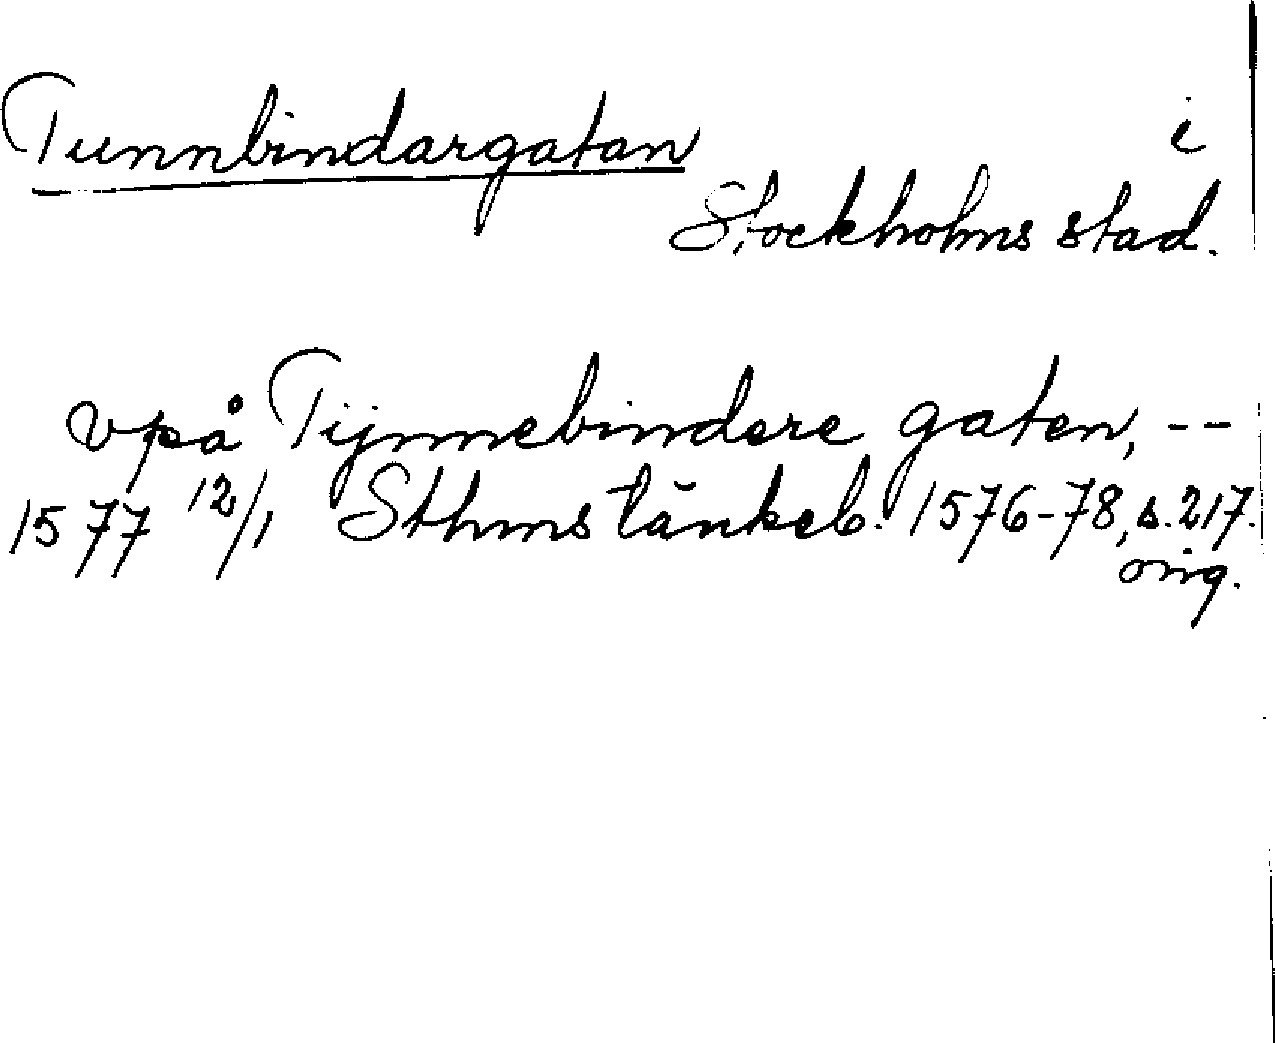 Tunnbindargatan i
Stockholms stad.
vpå Tijnnebindere gaten, --
1577 12/1 Sthms tänkeb. 1576-78, s. 217.
orig.